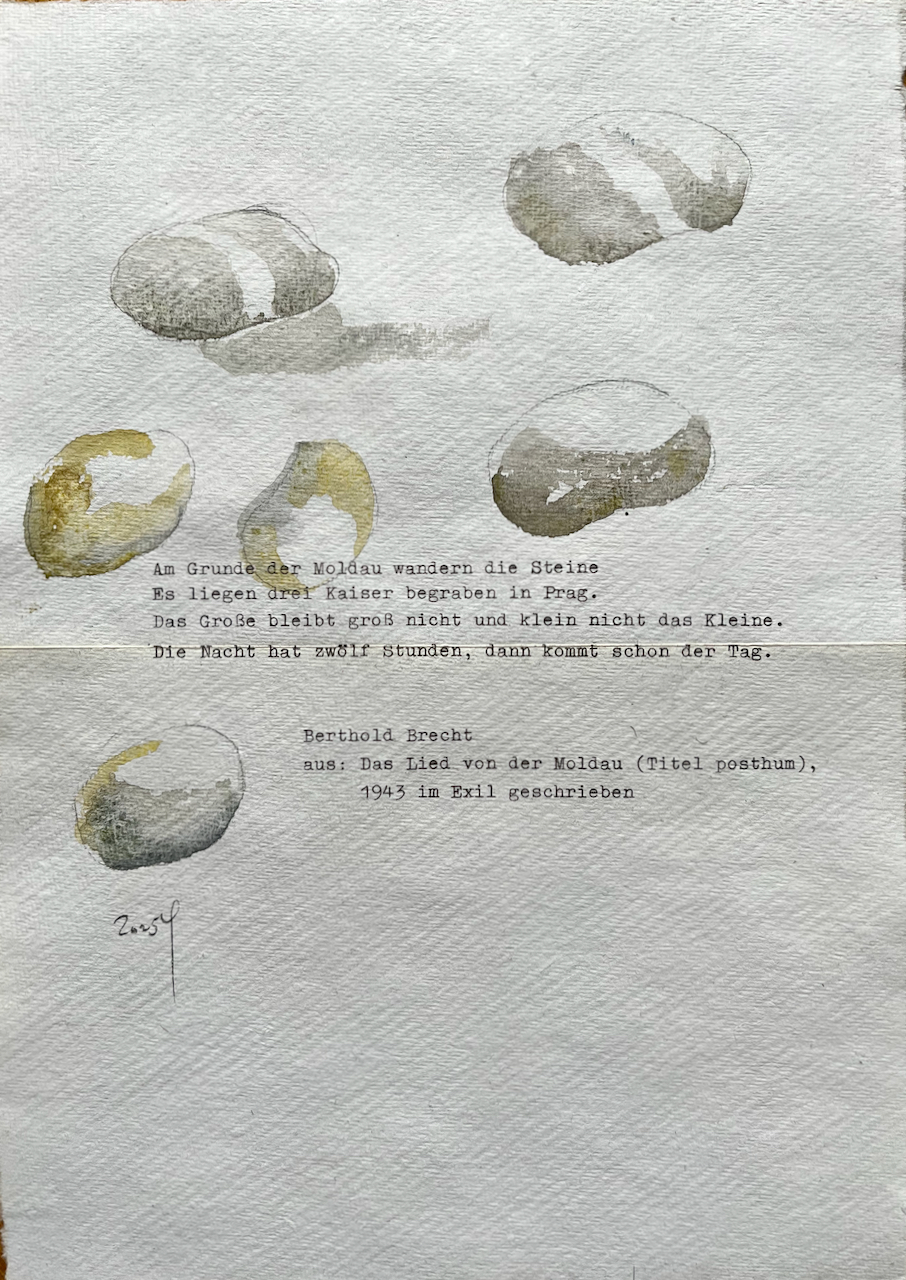 Am Grunde der Moldau wandern die Steine
Es liegen drei Kaiser begraben in Prag.
Das Große bleibt groß nicht und klein nicht das Kleine.
Die Nacht hat zwölf Stunden, dann kommt schon der Tag.
Berthold Brecht
aus: Das Lied von der Moldau (Titel posthum),
1943 im Exil geschrieben
2025